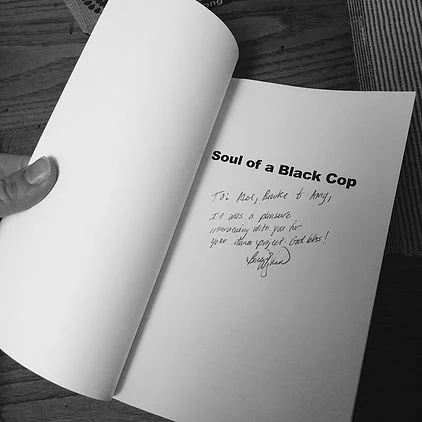 Soul of a Black Cop
To: , Brooke & Amy,
It was a pleasure
with you for
your project. God bless!